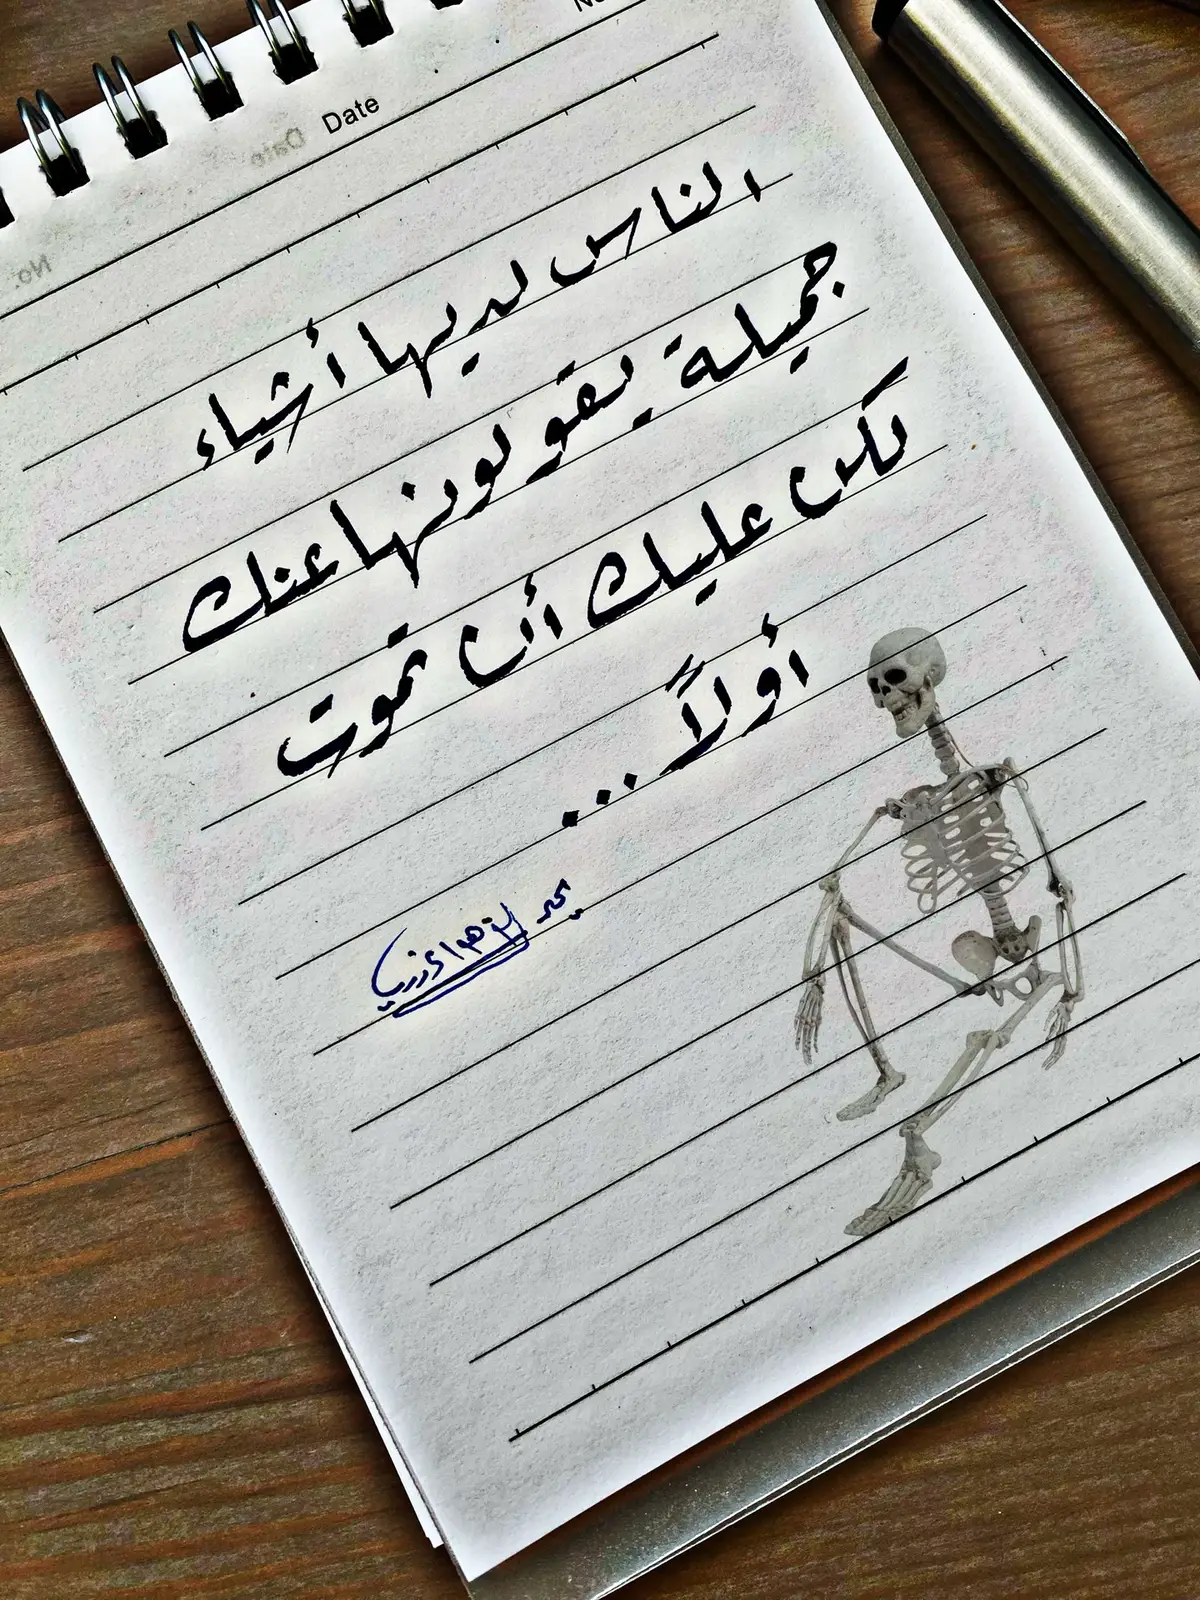 Date
الناس لديها أشياء
جميلة يقولونها عنك
لكن عليك أن تموت
أولاً...